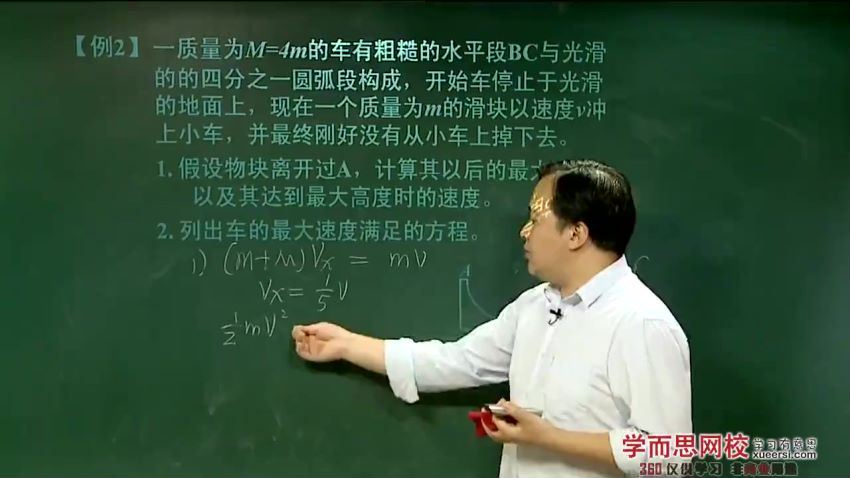 【例2】一质量为M=4m的车有粗糙的水平段BC与光滑
的的四分之一圆弧段构成，开始车停止于光滑
的地面上，现在一个质量为m的滑块以速度v冲
上小车，并最终刚好没有从小车上掉下去。
1. 假设物块离开过A，计算其以后的最大
以及其达到最大高度时的速度。
2. 列出车的最大速度满足的方程。
1) (m+M)Vx = mV
Vx = 1/5 V
1/2 mV²
A
学而思网校 学习有意思
xueersi.com
360 仅供学习